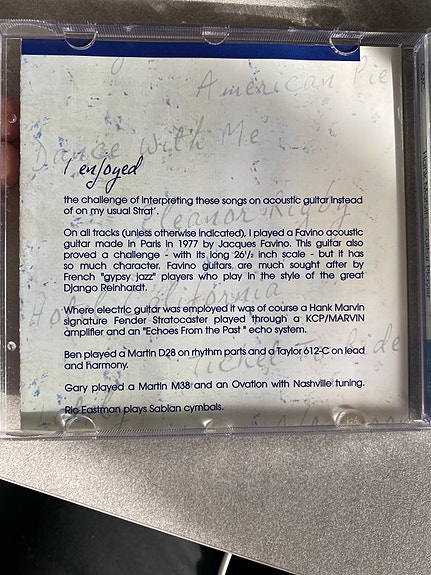 American Pie
Dance With Me
I enjoyed
the challenge of interpreting these songs on acoustic guitar instead
of on my usual Strat'.
Eleanor Rigby
On all tracks (unless otherwise indicated), I played a Favino acoustic
guitar made in Paris in 1977 by Jacques Favino. This guitar also
proved a challenge - with its long 26½ inch scale - but it has
so much character. Favino guitars are much sought after by
French "gypsy jazz" players who play in the style of the great
Django Reinhardt.
Hotel California
Where electric guitar was employed it was of course a Hank Marvin
signature Fender Stratocaster played through a KCP/MARVIN
amplifier and an "Echoes From the Past" echo system.
Ticket To Ride
Ben played a Martin D28 on rhythm parts and a Taylor 612-C on lead
and harmony.
Gary played a Martin M38 and an Ovation with Nashville tuning.
Ric Eastman plays Sabian cymbals.